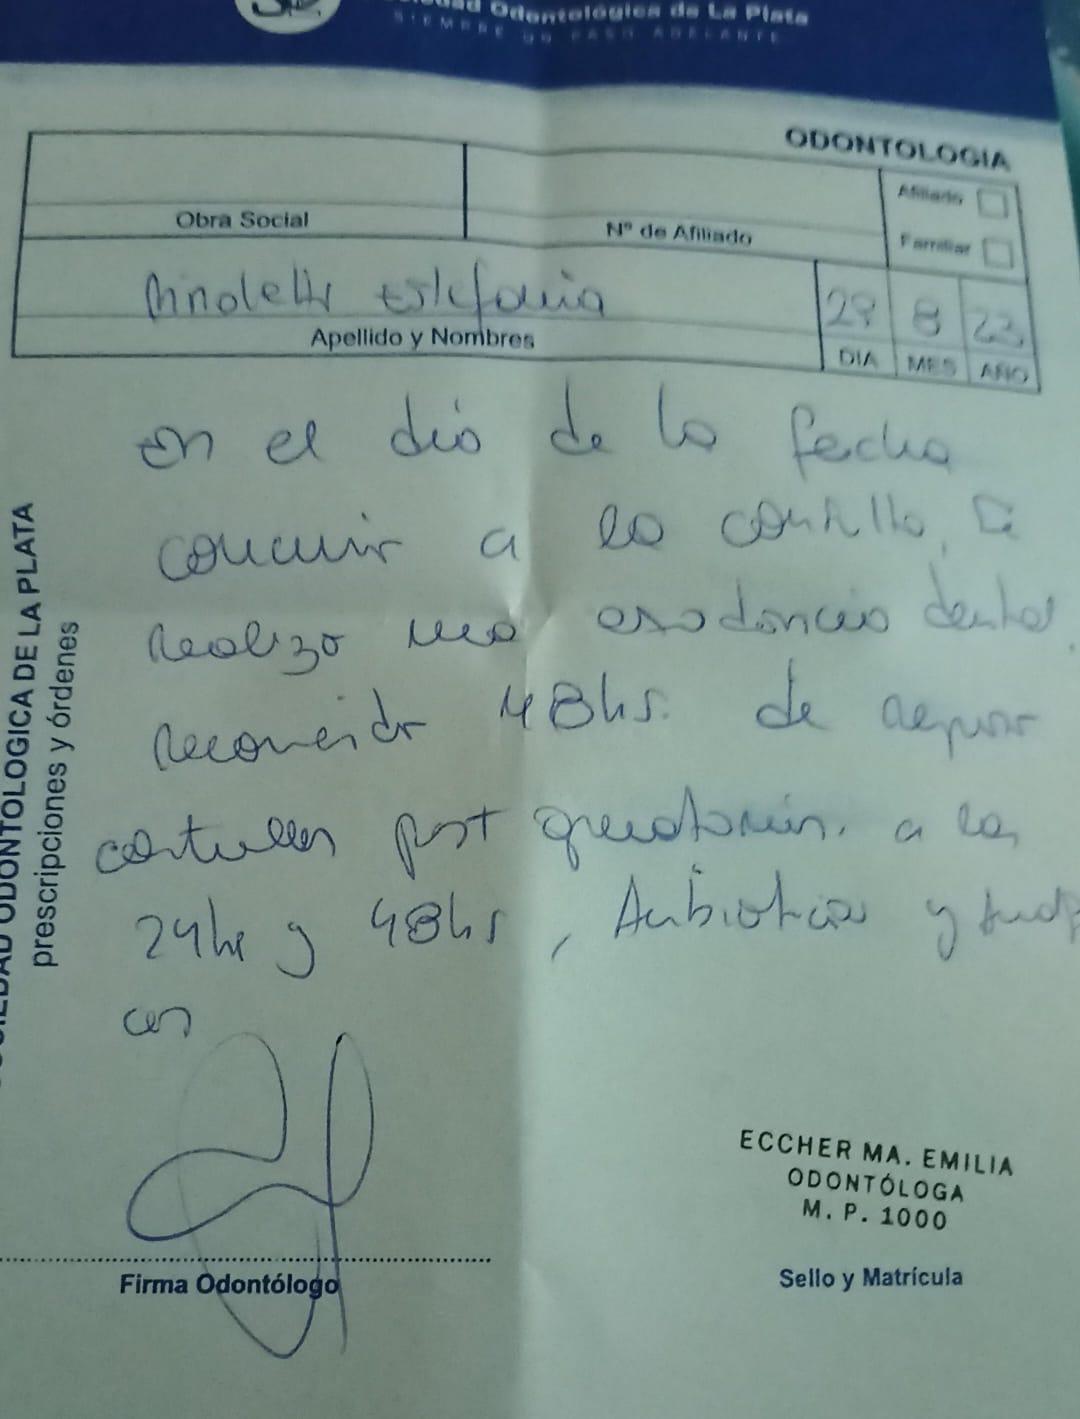 Odontológica de La Plata
SIEMPRE UN PASO ADELANTE
ODONTOLOGIA
Afiliado
Obra Social
Nº de Afiliado
Familiar
Estefania
8 23
Apellido y Nombres
DIA MES AÑO
en el día de la fecha
concurrir a la consulta, se
realizo una exodoncia dental.
recomiendo 48hs. de reposo
controles post a las
24hs y 48hs, Antibioticos y
SOCIEDAD ODONTOLOGICA DE LA PLATA
prescripciones y órdenes
ECCHER MA. EMILIA
ODONTÓLOGA
M. P. 1000
Firma Odontólogo
Sello y Matrícula